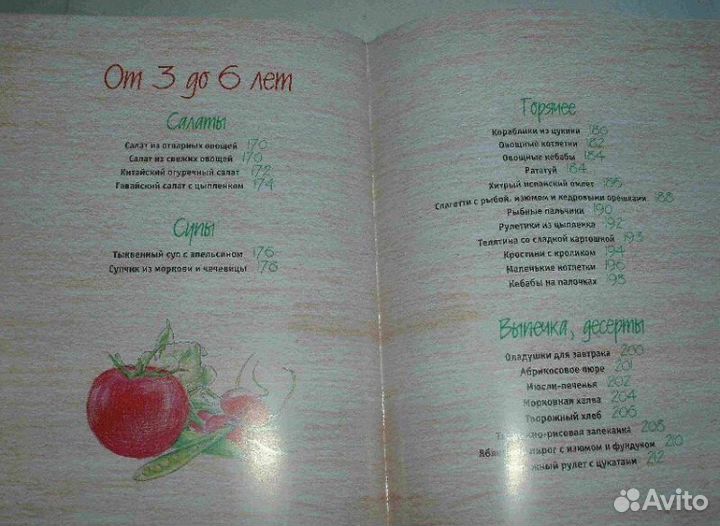 От 3 до 6 лет
Салаты
Салат из отварных овощей 170
Салат из свежих овощей 170
Китайский огуречный салат 172
Гавайский салат с цыпленком 174
Супы
Тыквенный суп с апельсином 176
Супчик из моркови и чечевицы 178
Горячее
Кораблики из цукини 180
Овощные котлетки 182
Овощные кебабы 184
Рататуй 184
Хитрый испанский омлет 186
Спагетти с рыбой, изюмом и кедровыми орешками 188
Рыбные пальчики 190
Рулетики из цыпленка 192
Телятина со сладкой картошкой 193
Кростини с кроликом 194
Маленькие котлетки 196
Кебабы на палочках 198
Выпечка, десерты
Оладушки для завтрака 200
Абрикосовое пюре 201
Мюсли-печенья 202
Морковная халва 204
Творожный хлеб 206
рисовая запеканка 208
пирог с изюмом и фундуком 210
рулет с цукатами 212
Avito